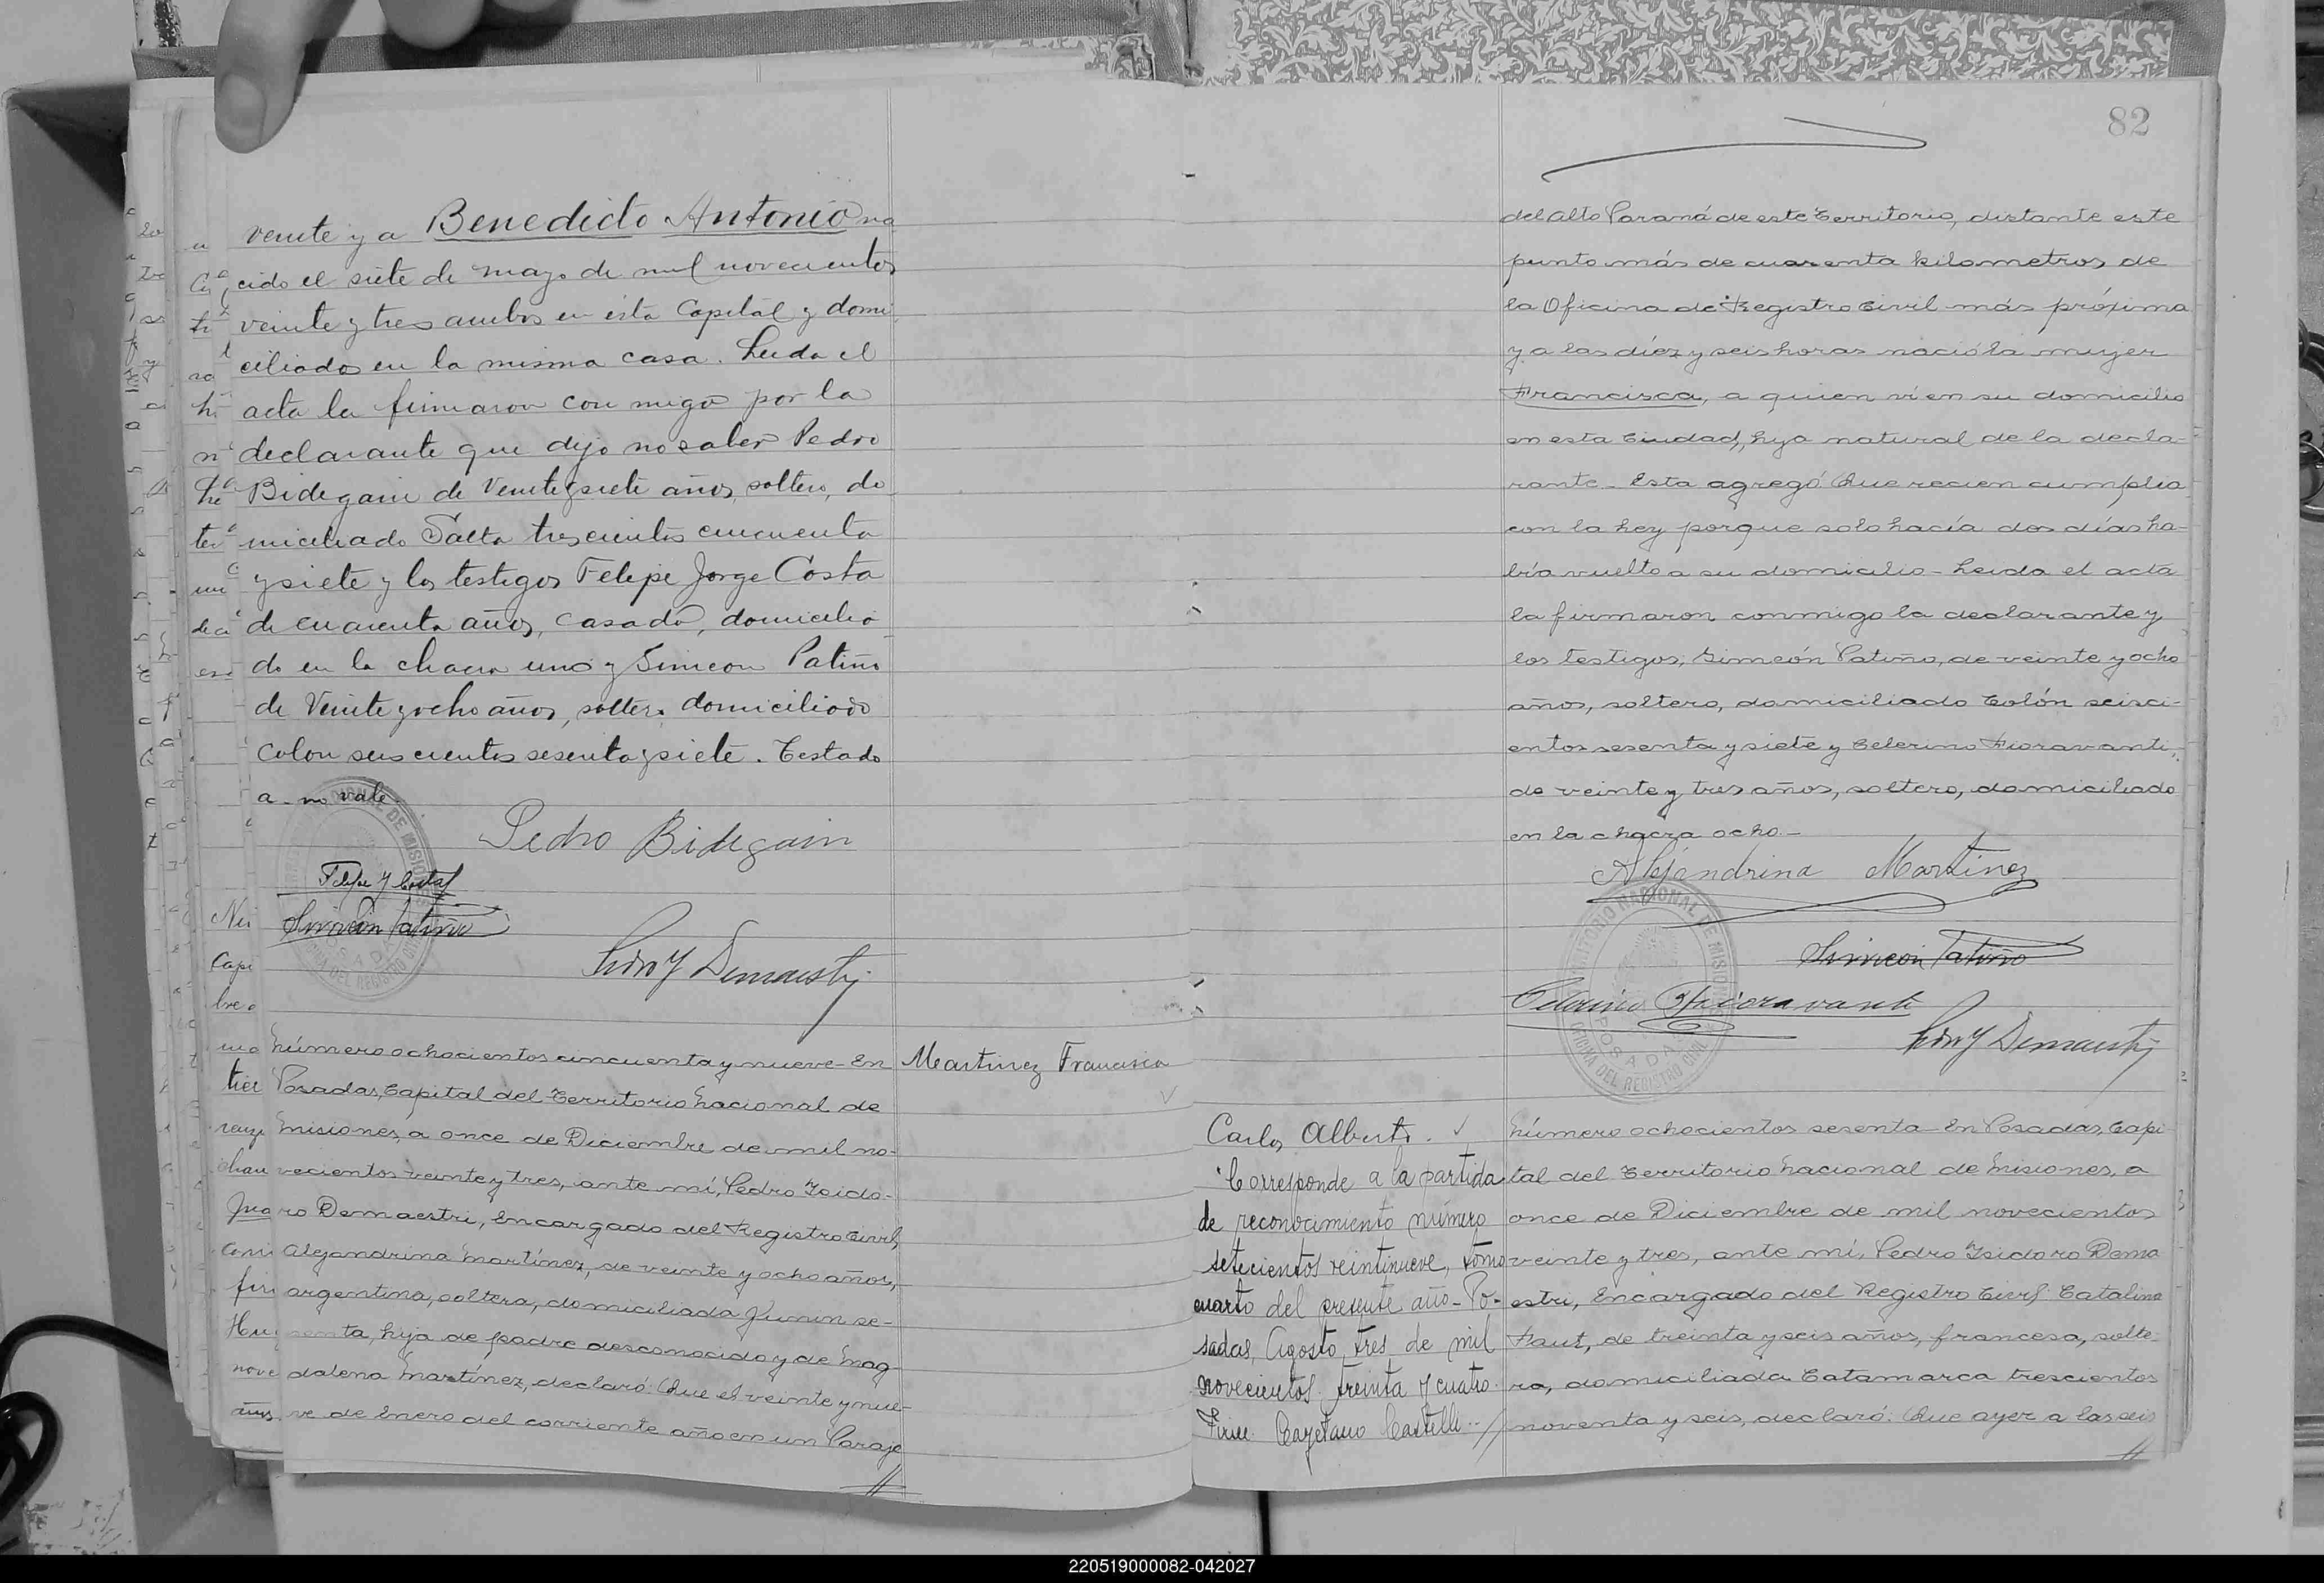 veinte y a Benedicto Antonio na
cido el siete de mayo de mil novecientos
veinte y tres ambos en esta Capital y domi
ciliados en la misma casa. Leida el
acta la firmaron con migo por la
declarante que dijo no saber Pedro
Bidegain de Veinte y siete años, soltero, do
miciliado Salta trescientos cincuenta
y siete y los testigos Felipe Jorge Costa
de cuarenta años, casado, domicilia
do en la chacra uno y Simeon Patiño
de Veinte y ocho años, soltero domiciliado
Colon seiscientos sesenta y siete. Testado
a no vale.
Pedro Bidegain
Felipe J Costa
Simeón Patiño
Pedro Y Demaestri
Número ochocientos cincuenta y nueve- En
Martinez Francisca
Posadas, Capital del Territorio Nacional de
Misiones, a once de Diciembre de mil no-
vecientos veinte y tres, ante mí, Pedro Isido-
ro Demaestri, Encargado del Registro Civil,
Alejandrina Martínez, de veinte y ocho años,
argentina, soltera, domiciliada Junin se-
senta, hija de padre desconocido y de Mag-
dalena Martínez, declaró: Que el veinte y nue-
ve de Enero del corriente año en un Paraje
82
del Alto Paraná de este Territorio, distante este
punto más de cuarenta kilometros de
la Oficina de Registro Civil más próxima
y a las díez y seis horas nació la mujer
Francisca, a quien ví en su domicilio
en esta Ciudad, hija natural de la decla-
rante- Esta agregó: Que recien cumplia
con la Ley porque solo hacía dos días ha-
bía vuelto a su domicilio- Leida el acta
la firmaron conmigo la declarante y
los testigos; Simeón Patiño, de veinte y ocho
años, soltero, domiciliado Colón seisci-
entos sesenta y siete y Celerino Fioravanti,
de veinte y tres años, soltero, domiciliado
en la chacra ocho.-
Alejandrina Martinez
Simeon Patiño
Celerino Fioravanti
Pedro Y Demaestri
TERRITORIO NACIONAL DE MISIONES
POSADAS
OFICINA DEL REGISTRO CIVIL
Carlos Alberto.
Corresponde a la partida
de reconocimiento número
setecientos veintinueve, tomo
cuarto del presente año- Po-
sadas, Agosto tres de mil
novecientos treinta y cuatro.
Firme Cayetano Castelli
Número ochocientos sesenta- En Posadas, Capi-
tal del Territorio Nacional de Misiones, a
once de Diciembre de mil novecientos
veinte y tres, ante mí, Pedro Isidoro Dema
estri, Encargado del Registro Civil Catalina
Faut, de treinta y seis años, francesa, solte-
ra, domiciliada Catamarca trescientos
noventa y seis, declaró: Que ayer a las seis
220519000082-042027